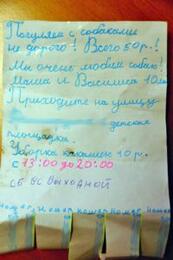 Погуляем с собаками
не дорого! Всего 50р.!
Мы очень любим собак!
Маша и Василиса 10лет
Приходите на улицу
детская
площадка.
Уборка какашек 10 р.
с 13:00 до 20:00
СБ ВС ВЫХОДНОЙ
номер номер номер номер номер